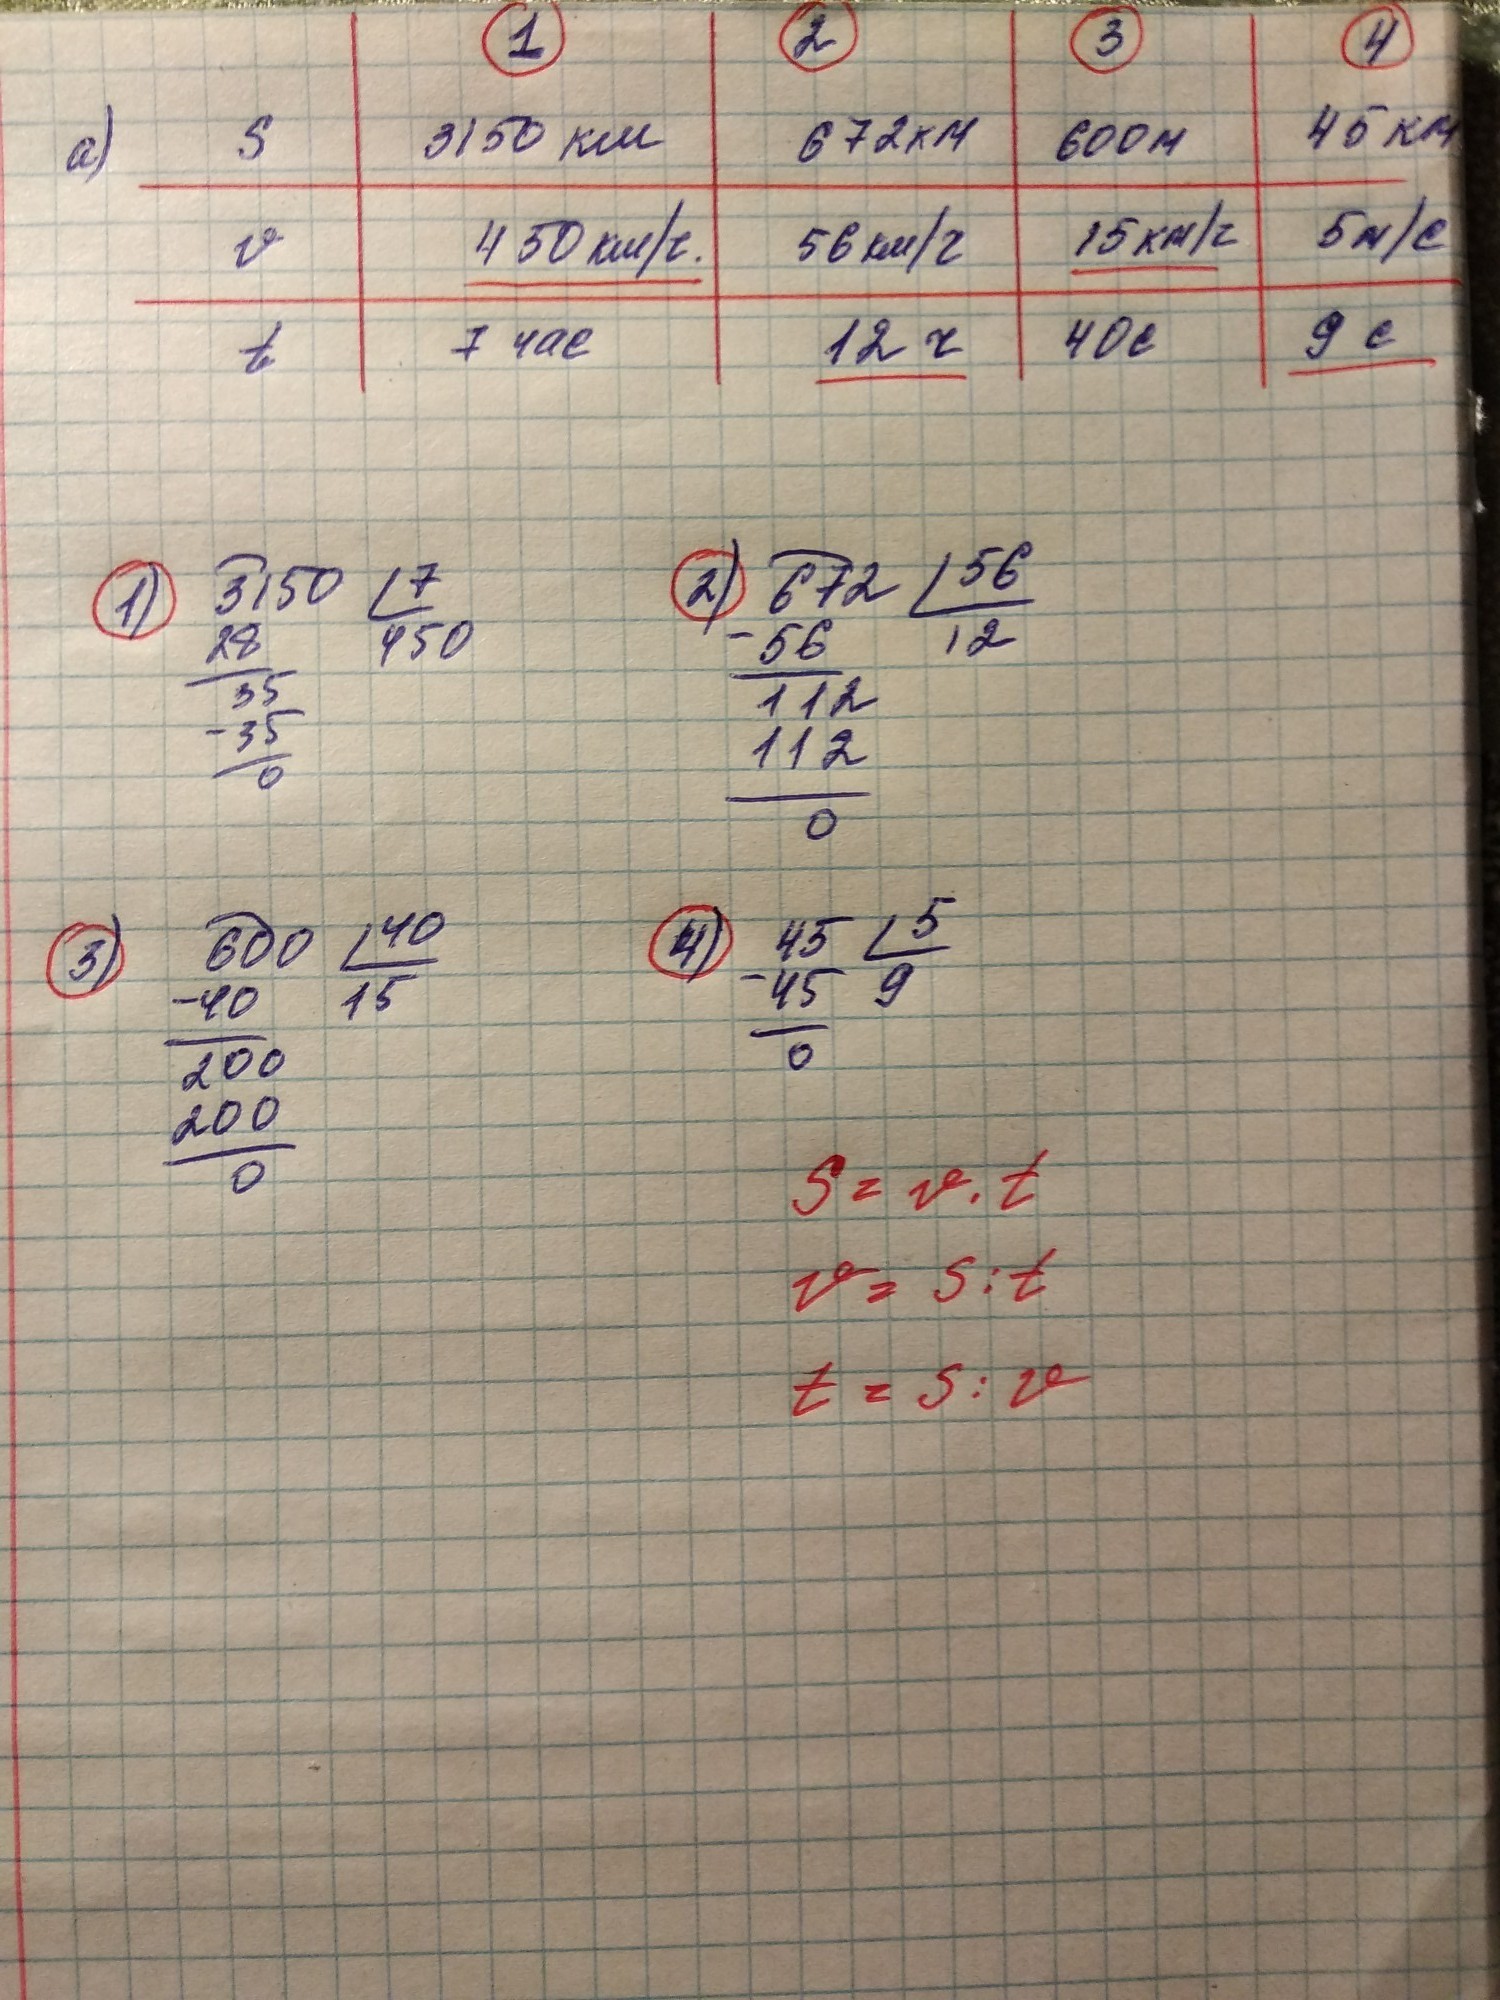 1 2 3 4
а) S 3150 км 672 км 600 м 45 км
v 450 км/ч. 56 км/ч 15 км/ч 5 м/с
t 7 час 12 ч 40 с 9 с
1) 3150 7
28 450
35
-35
0
2) 672 56
-56 12
112
112
0
3) 600 40
-40 15
200
200
0
4) 45 5
-45 9
0
S = v · t
v = S : t
t = S : v